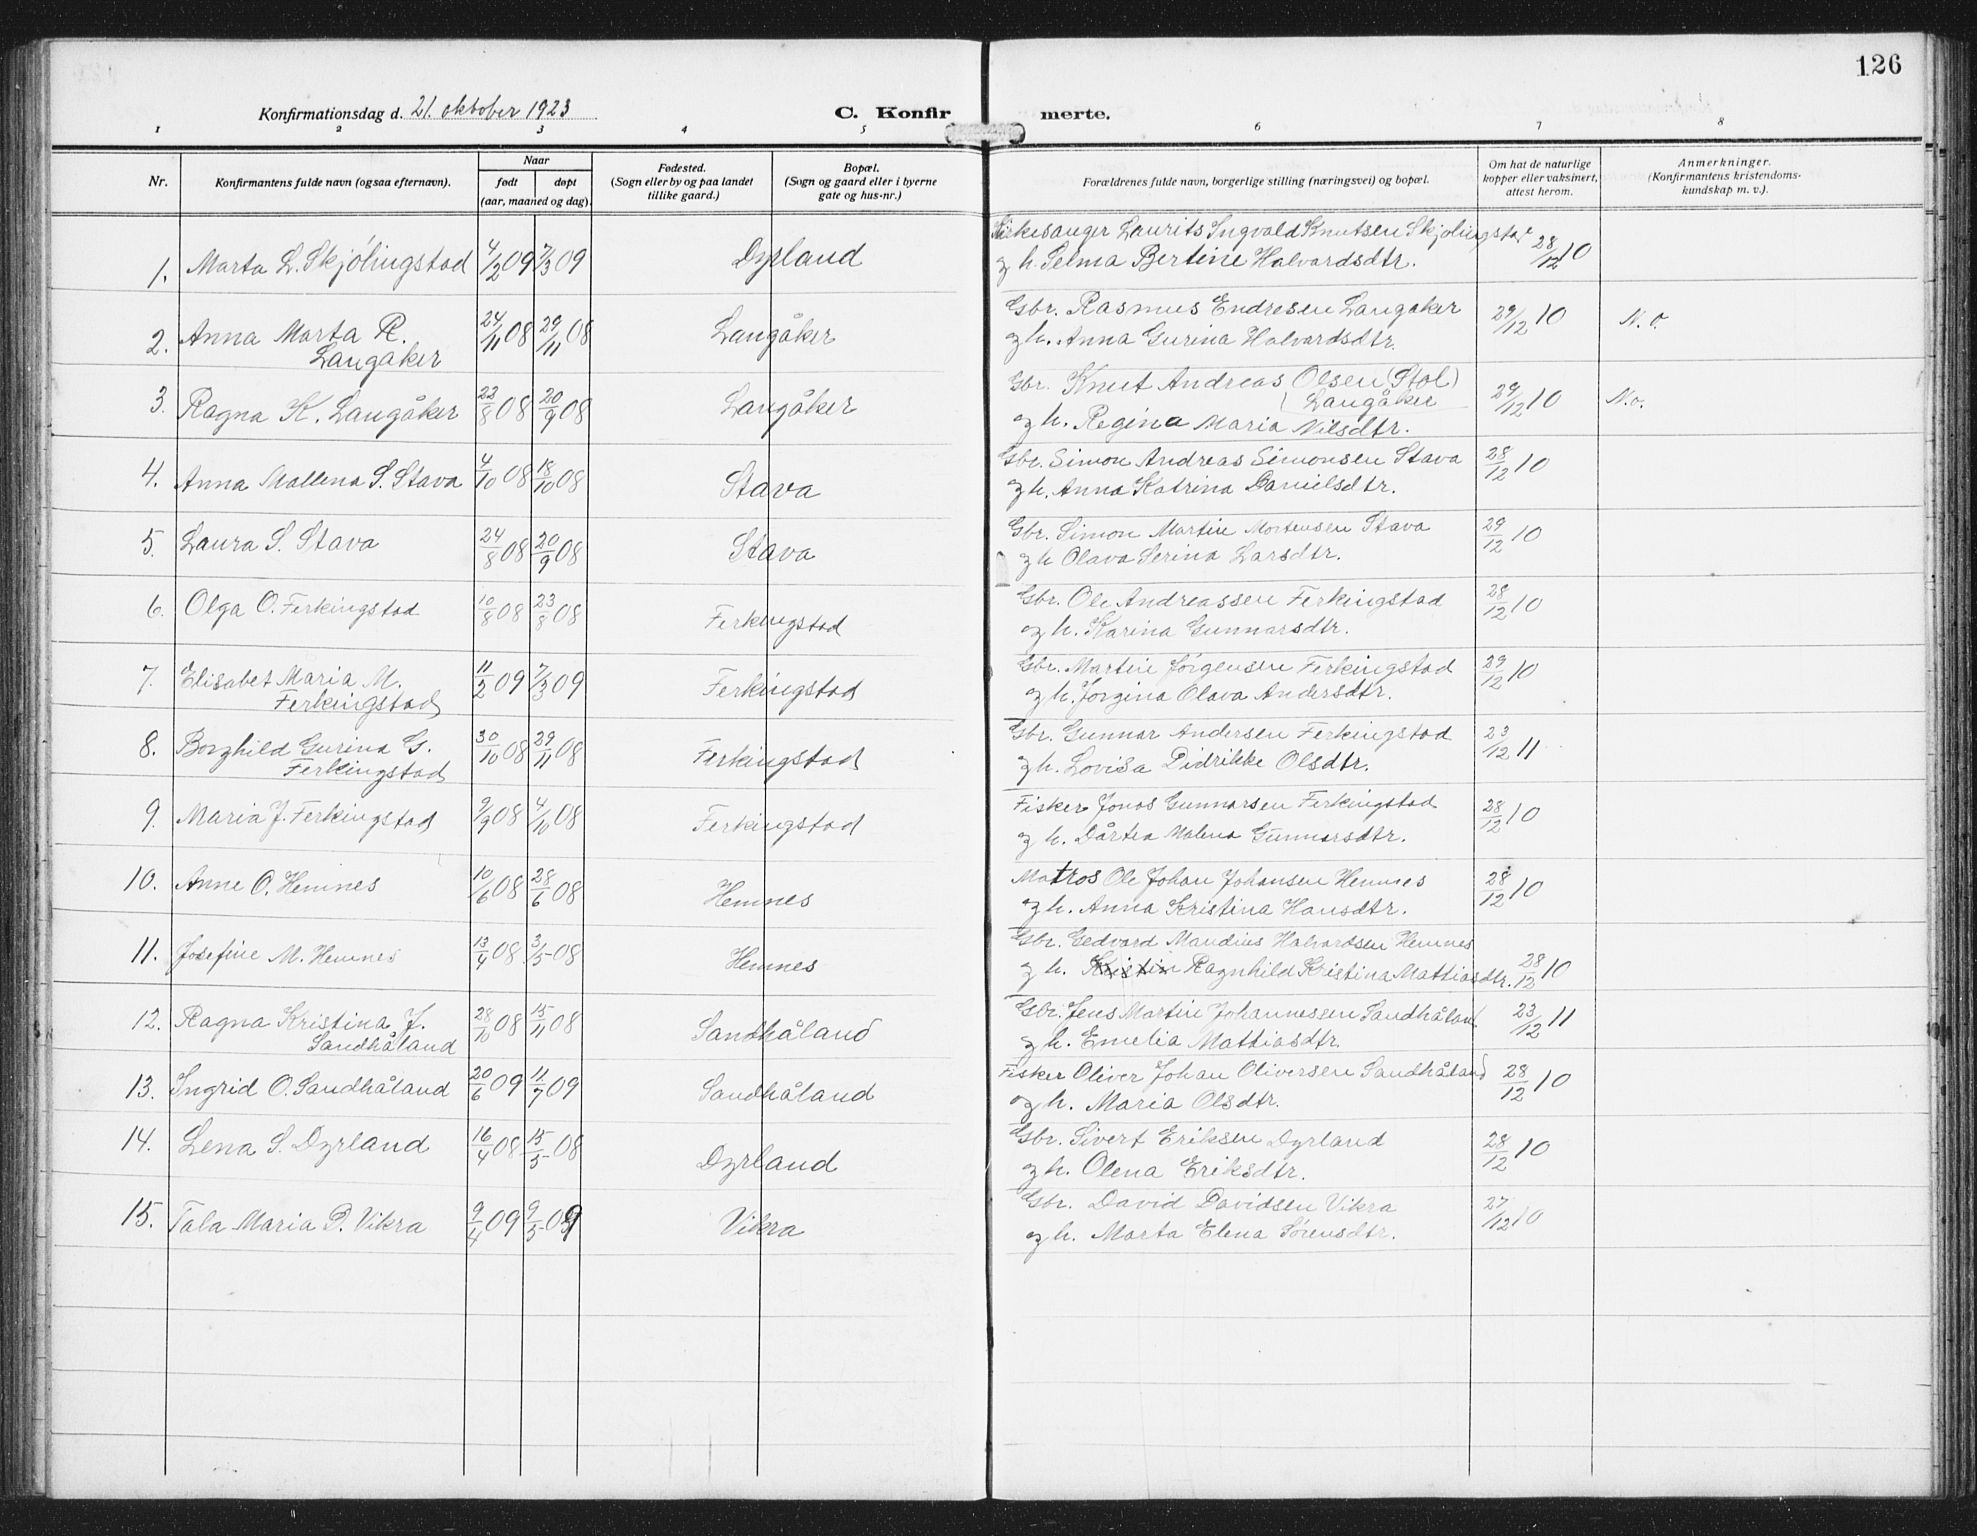 126
Konfirmationsdag d. 21. oktober 1923
C. Konfir merte.
1 2 3 4 5 6 7 8
Nr.
Konfirmantens fulde navn (ogsaa efternavn).
Naar
født døpt
(aar, maaned og dag).
Fødested.
(Sogn eller by og paa landet
tillike gaard.)
Bopæl.
(Sogn og gaard eller i byerne
gate og hus-nr.)
Forældrenes fulde navn, borgerlige stilling (næringsvei) og bopæl.
Om hat de naturlige
kopper eller vaksinert,
attest herom.
Anmerkninger.
(Konfirmantens kristendoms-
kundskap m. v.).
1. Marta L. Skjölingstad 4/2 09 7/3 09 Dyrland Kirkesanger Laurits Ingvald Knutsen Skjolingstad 28/12 10
og h. Selma Bertine Halvardsdtr.
2. Anna Marta R. 24/11 08 29/11 08 Langåker Gbr. Rasmus Endresen Langaker 29/12 10 N. o.
Langåker og h. Anna Gurina Halvardsdtr.
3. Ragna K. Langåker 22/8 08 20/9 08 Langåker Gbr. Knut Andreas Olsen (Stol) 29/12 10 N. o.
Langåker
og h. Regina Maria Nilsdtr.
4. Anna Mallena S. Stava 4/10 08 18/10 08 Stava Gbr. Simon Andreas Simonsen Stava 28/12 10
og h. Anna Katrina Danielsdtr.
5. Laura S. Stava 24/8 08 20/9 08 Stava Gbr. Simon Martin Mortensen Stava 29/12 10
og h Olava Serina Larsdtr.
6. Olga O. Ferkingstad 10/8 08 23/8 08 Ferkingstad Gbr. Ole Andreassen Ferkingstad 28/12 10
og h. Karina Gunnarsdtr.
7. Elisabet Maria M. 11/2 09 7/3 09 Ferkingstad Gbr. Martin Jörgensen Ferkingstad 29/12 10
Ferkingstad og h. Jorgina Olava Andersdtr.
8. Borghild Gurina G. 30/10 08 29/11 08 Ferkingstad Gbr. Gunnar Andersen Ferkingstad 23/12 11
Ferkingstad og h. Lovisa Didrikke Olsdtr.
9. Maria J. Ferkingstad 9/9 08 4/10 08 Ferkingstad Fisker Jonas Gunnarsen Ferkingstad 28/12 10
og h. Dårtea Malena Gunnarsdtr.
10. Anne O. Hemnes 10/6 08 28/6 08 Hemnes Matros Ole Johan Johansen Hemnes 28/12 10
og h. Anna Kristina Hansdtr.
11. Josefine M. Hemnes 13/4 08 3/5 08 Hemnes Gbr. Gedvard Mandius Halvardsen Hemnes
og h. Kristin Ragnhild Kristina Mattiasdtr. 28/12 10
12. Ragna Kristina J. 28/10 08 15/11 08 Sandhåland Gbr. Jens Martin Johannessen Sandhåland 23/12 11
Sandhåland og h. Emelia Mattiasdtr.
13. Ingrid O. Sandhåland 20/6 09 11/7 09 Sandhåland Fisker Oliver Johan Oliversen Sandhåland 28/12 10
og h. Maria Olsdtr.
14. Lena S. Dyrland 16/4 08 15/5 08 Dyrland Gbr. Sivert Eriksen Dyrland 28/12 10
og h. Olena Eriksdtr.
15. Tala Maria D. Vikra 9/4 09 9/5 09 Vikra Gbr. David Davidsen Vikra 27/12 10
og h. Marta Elena Sörensdtr.